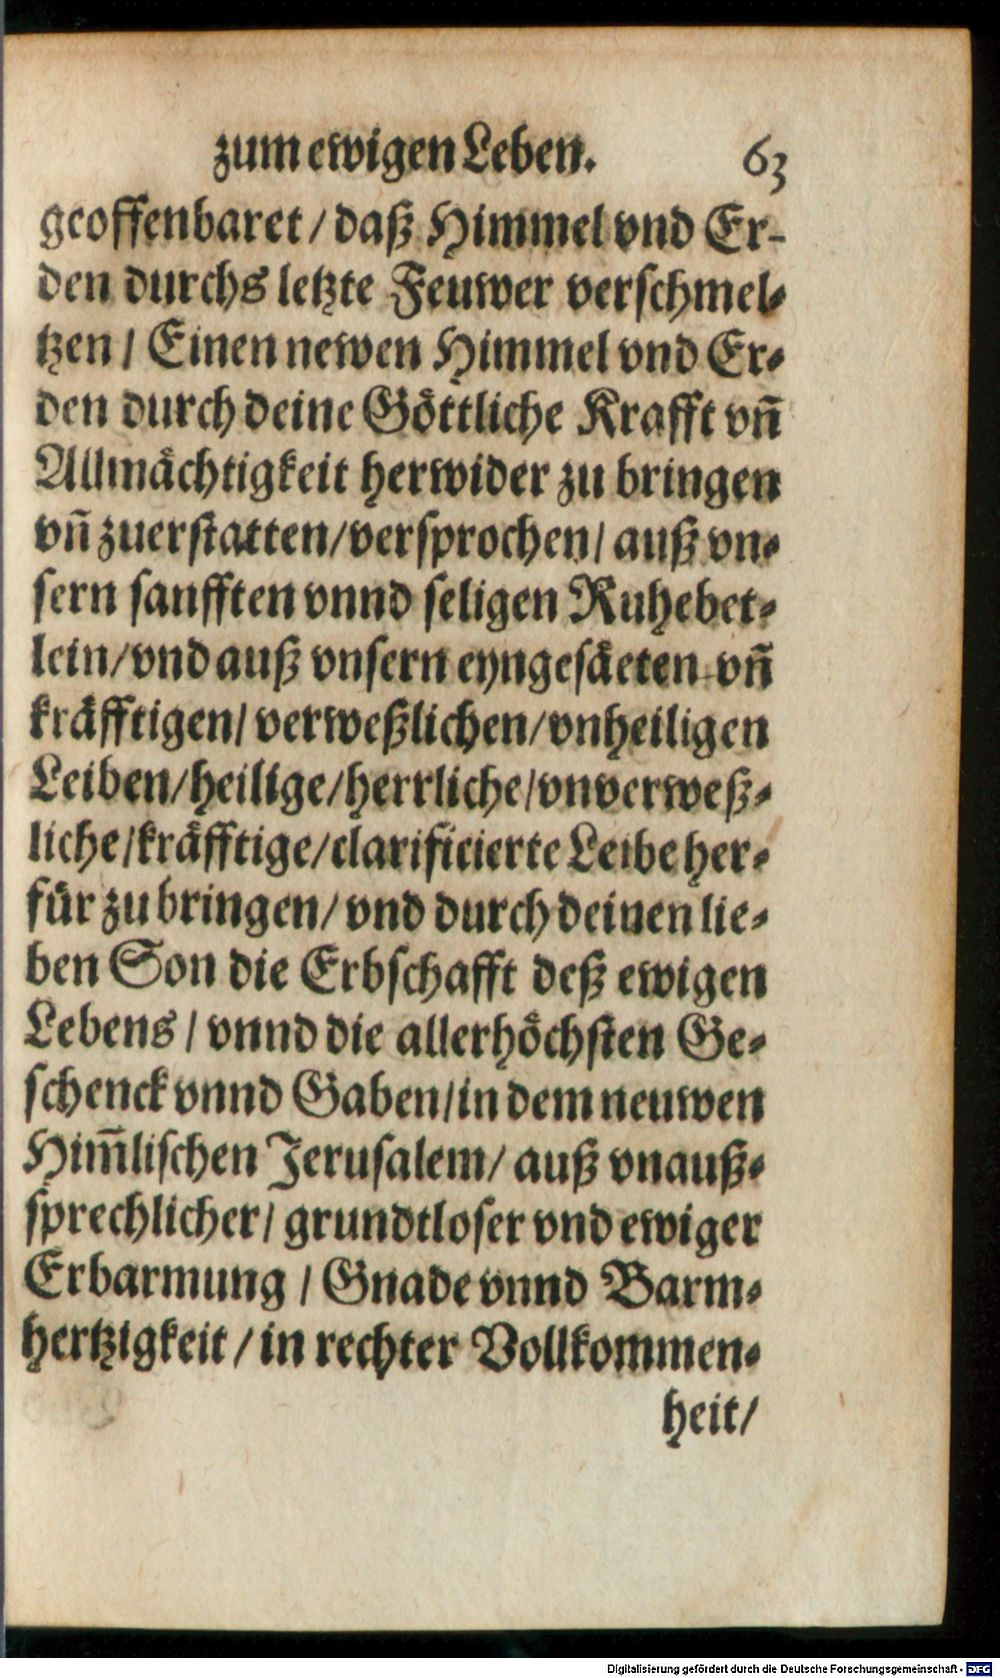 zum ewigen Leben. 63
geoffenbaret / daß Himmel vnd Er-
den durchs letzte Feuwer verschmel-
tzen / Einen newen Himmel vnd Er-
den durch deine Göttliche Krafft vñ
Allmächtigkeit herwider zu bringen
vñ zuerstatten / versprochen / auß vn-
sern sanfften vnnd seligen Ruhebet-
lein / vnd auß vnsern eyngesäeten vñ
kräfftigen / verweßlichen / vnheiligen
Leiben / heilige / herrliche / vnverweß-
liche / kräfftige / clarificierte Leibe her-
für zu bringen / vnd durch deinen lie-
ben Son die Erbschafft deß ewigen
Lebens / vnnd die allerhöchsten Ge-
schenck vnnd Gaben / in dem neuwen
Him̃lischen Jerusalem / auß vnauß-
sprechlicher / grundtloser vnd ewiger
Erbarmung / Gnade vnnd Barm-
hertzigkeit / in rechter Vollkommen-
heit /
Digitalisierung gefördert durch die Deutsche Forschungsgemeinschaft - DFG